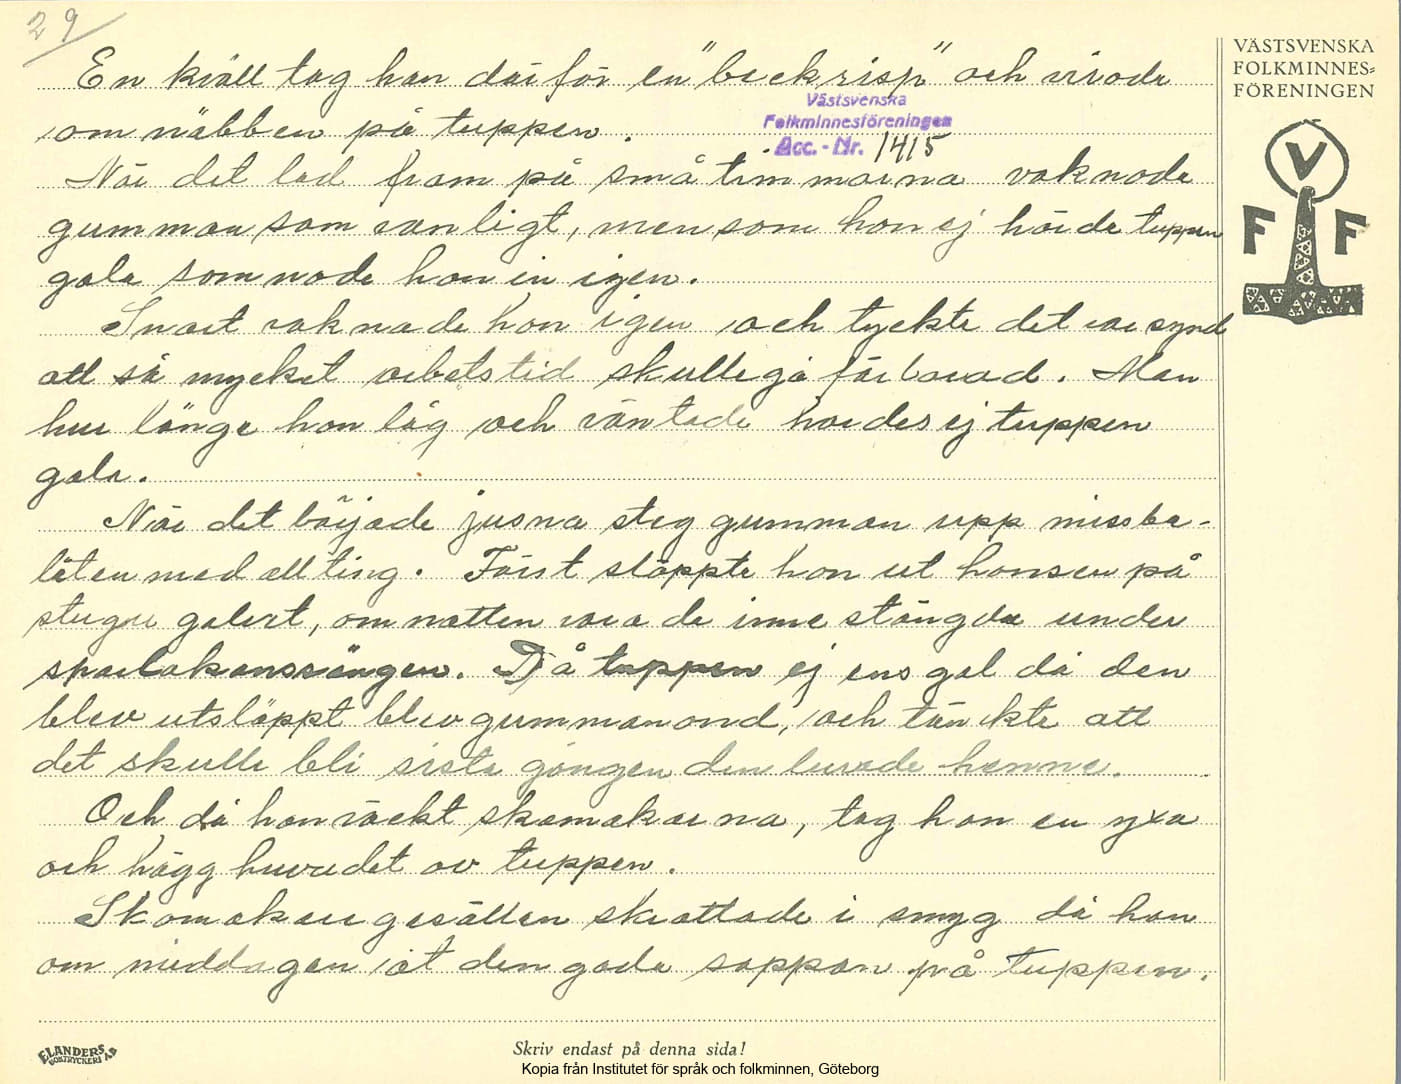 29
VÄSTSVENSKA
FOLKMINNES=
FÖRENINGEN
V
F F
En kväll tog han därför en "beckrisp" och virade
om näbben på tuppen.
Västsvenska
Folkminnesföreningen
Acc. - Nr. 1415
När det led fram på små timmarna vaknade
gumman som vanligt, men som hon ej hörde tuppen
gala somnade hon in igen.
Snart vaknade hon igen och tyckte det var synd
att så mycket arbetstid skulle gå förlorad. Man
hur länge hon låg och väntade hördes ej tuppen
gala.
När det började jusna steg gumman upp missbe-
låten med allting. Först släppte hon ut hönsen på
stugu golvet, om natten vara de inne stängda under
sparlakanssängen. Då tuppen ej ens gol då den
blev utsläppt blev gumman ond, och tänkte att
det skulle bli sista gången den lurade henne.
Och då hon väckt skomakarna, tog hon en yxa
och högg huvudet av tuppen.
Skomakaregesällen skrattade i smyg då han
om middagen åt den goda soppan på tuppen.
ELANDERS
BOKTRYCKERI AB
Skriv endast på denna sida!
Kopia från Institutet för språk och folkminnen, Göteborg